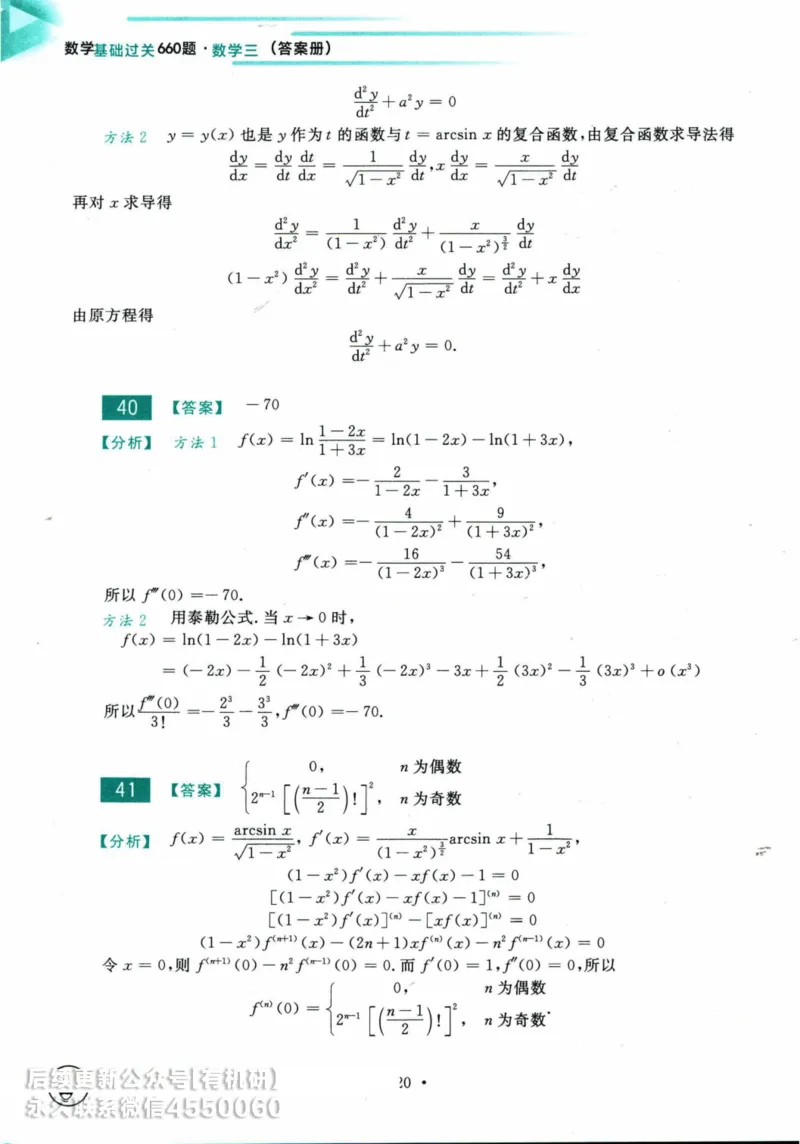 数学基础过关660题·数学三（答案册）
d²y/dt² + a²y = 0
方法2 y = y(x) 也是 y 作为 t 的函数与 t = arcsin x 的复合函数,由复合函数求导法得
dy/dx = dy/dt dt/dx = 1/√(1−x²) dy/dt, x dy/dx = x/√(1−x²) dy/dt
再对 x 求导得
d²y/dx² = 1/(1−x²) d²y/dt² + x/(1−x²)^(3/2) dy/dt
(1−x²) d²y/dx² = d²y/dt² + x/√(1−x²) dy/dt = d²y/dt² + x dy/dx
由原方程得
d²y/dt² + a²y = 0.
40 【答案】 −70
【分析】 方法1 f(x) = ln (1−2x)/(1+3x) = ln(1−2x) − ln(1+3x),
f′(x) = − 2/(1−2x) − 3/(1+3x),
f″(x) = − 4/(1−2x)² + 9/(1+3x)²,
f‴(x) = − 16/(1−2x)³ − 54/(1+3x)³,
所以 f‴(0) = −70.
方法2 用泰勒公式.当 x → 0 时,
f(x) = ln(1−2x) − ln(1+3x)
= (−2x) − 1/2 (−2x)² + 1/3 (−2x)³ − 3x + 1/2 (3x)² − 1/3 (3x)³ + o(x³)
所以 f‴(0)/3! = − 2³/3 − 3³/3, f‴(0) = −70.
41 【答案】 { 0, n 为偶数
2^(n−1) [((n−1)/2)!]², n 为奇数
【分析】 f(x) = arcsin x/√(1−x²), f′(x) = x/(1−x²)^(3/2) arcsin x + 1/(1−x²),
(1−x²)f′(x) − xf(x) − 1 = 0
[(1−x²)f′(x) − xf(x) − 1]^(n) = 0
[(1−x²)f′(x)]^(n) − [xf(x)]^(n) = 0
(1−x²)f^(n+1)(x) − (2n+1)xf^(n)(x) − n²f^(n−1)(x) = 0
令 x = 0,则 f^(n+1)(0) − n²f^(n−1)(0) = 0.而 f′(0) = 1,f″(0) = 0,所以
f^(n)(0) = { 0, n 为偶数
2^(n−1) [((n−1)/2)!]², n 为奇数.
20 •
后续更新公众号[有机研]
永久联系微信4550060